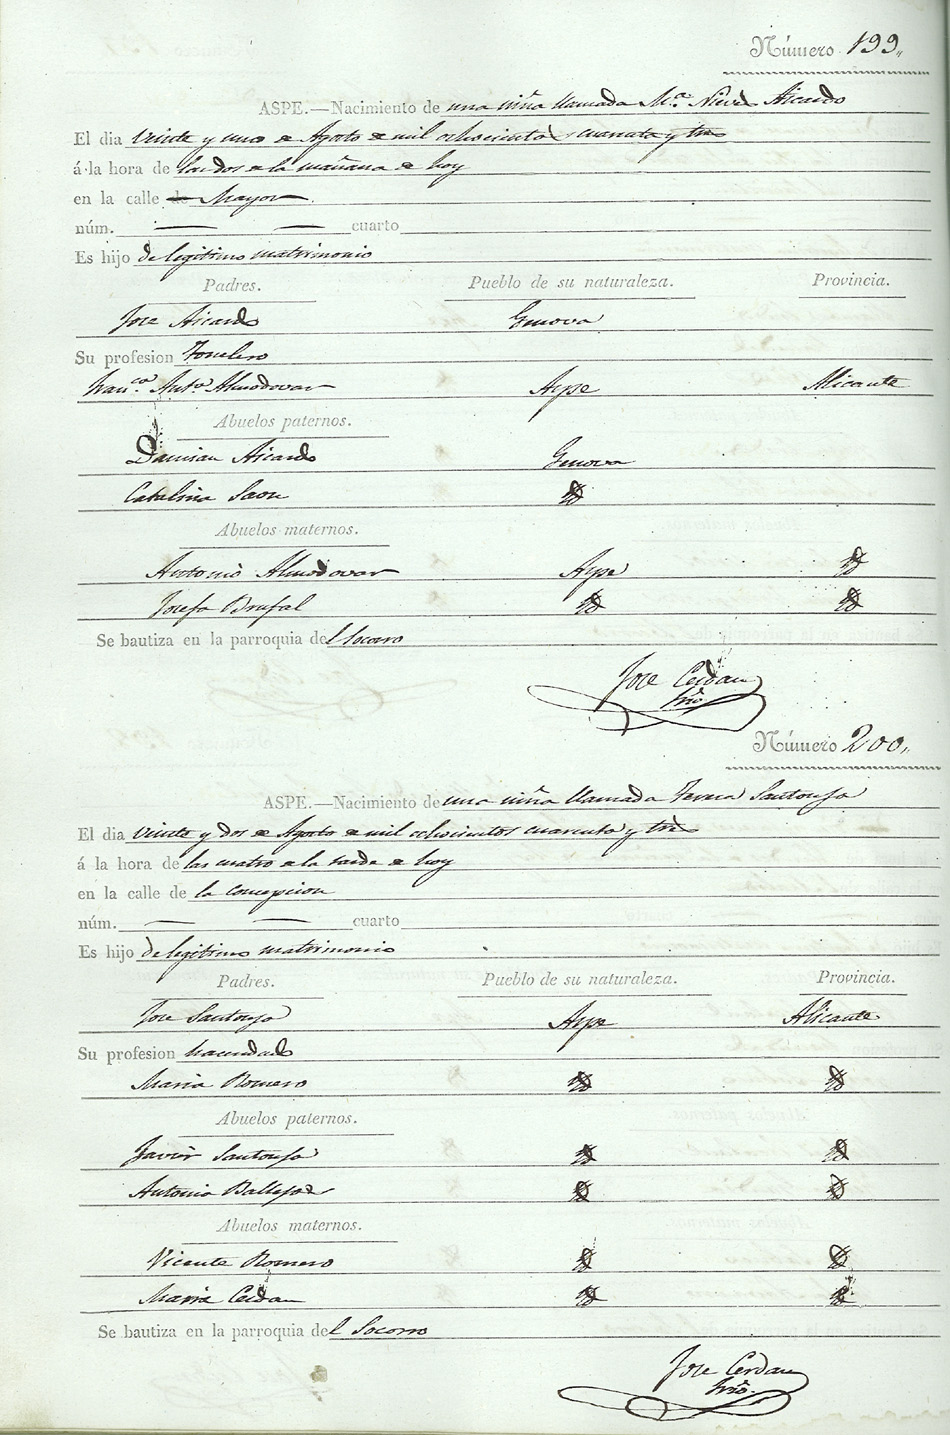 Número 199.
ASPE.—Nacimiento de una niña llamada M.ª Nieves Aicardo
El dia Veinte y uno de Agosto de mil ochocientos cuarenta y tres
á la hora de las dos de la mañana de hoy
en la calle de Mayor
núm. — — cuarto
Es hijo de legitimo matrimonio
Padres. Pueblo de su naturaleza. Provincia.
Jose Aicardo Genova
Su profesion Tonelero
Fran.ca Ant.a Almodovar Aspe Alicante
Abuelos paternos.
Damian Aicardo Genova
Catalina Saon Yd
Abuelos maternos.
Antonio Almodovar Aspe Yd
Josefa Brufal Yd Yd
Se bautiza en la parroquia del Socorro
Jose Cerdan
Srio
Número 200.
ASPE.—Nacimiento de una niña llamada Teresa Santonja
El dia Veinte y dos de Agosto de mil ochocientos cuarenta y tres
á la hora de las cuatro de la tarde de hoy
en la calle de la concepcion
núm. — — cuarto
Es hijo de legitimo matrimonio
Padres. Pueblo de su naturaleza. Provincia.
Jose Santonja Aspe Alicante
Su profesion hacendado
Maria Romero Yd Yd
Abuelos paternos.
Javier Santonja Yd Yd
Antonia Ballester Yd Yd
Abuelos maternos.
Vicente Romero Yd Yd
Maria Cerdan Yd Yd
Se bautiza en la parroquia del Socorro
Jose Cerdan
Srio.